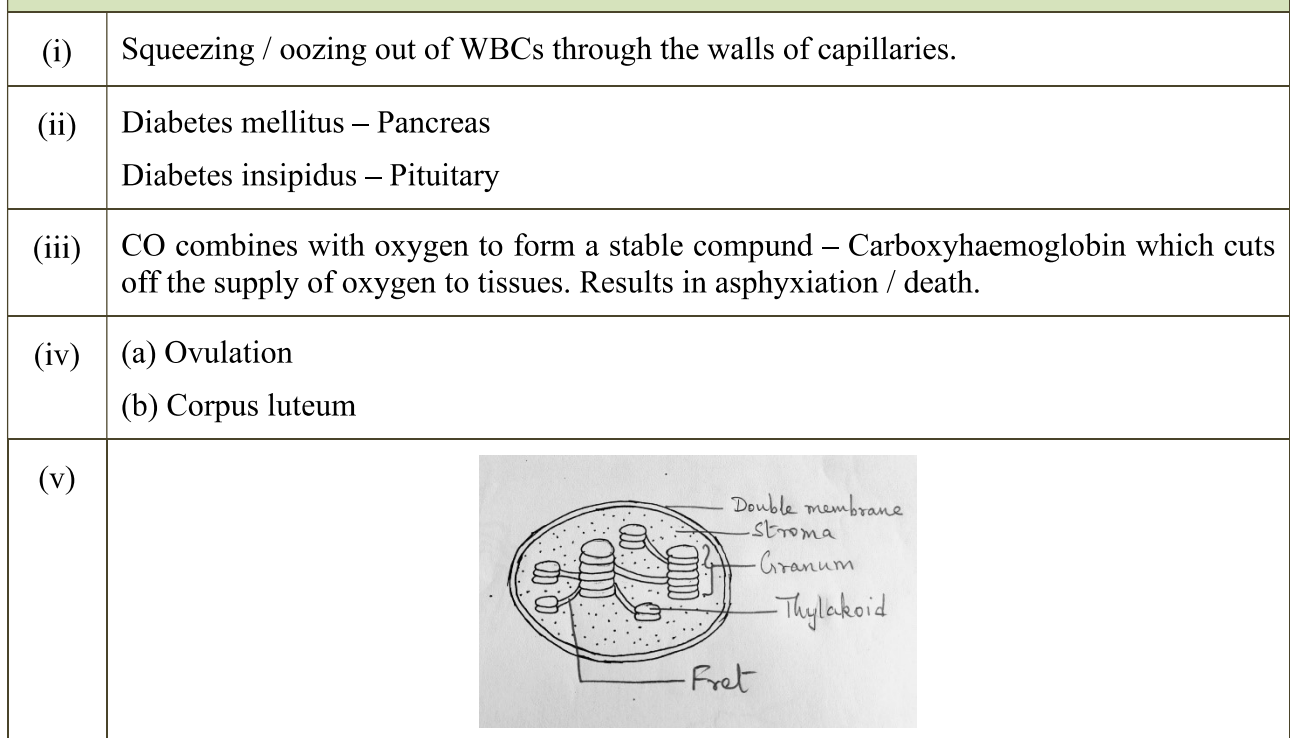 (i)
Squeezing / oozing out of WBCs through the walls of capillaries.
(ii)
Diabetes mellitus – Pancreas
Diabetes insipidus – Pituitary
(iii)
CO combines with oxygen to form a stable compund – Carboxyhaemoglobin which cuts
off the supply of oxygen to tissues. Results in asphyxiation / death.
(iv)
(a) Ovulation
(b) Corpus luteum
(v)
Double membrane
Stroma
Granum
Thylakoid
Fret